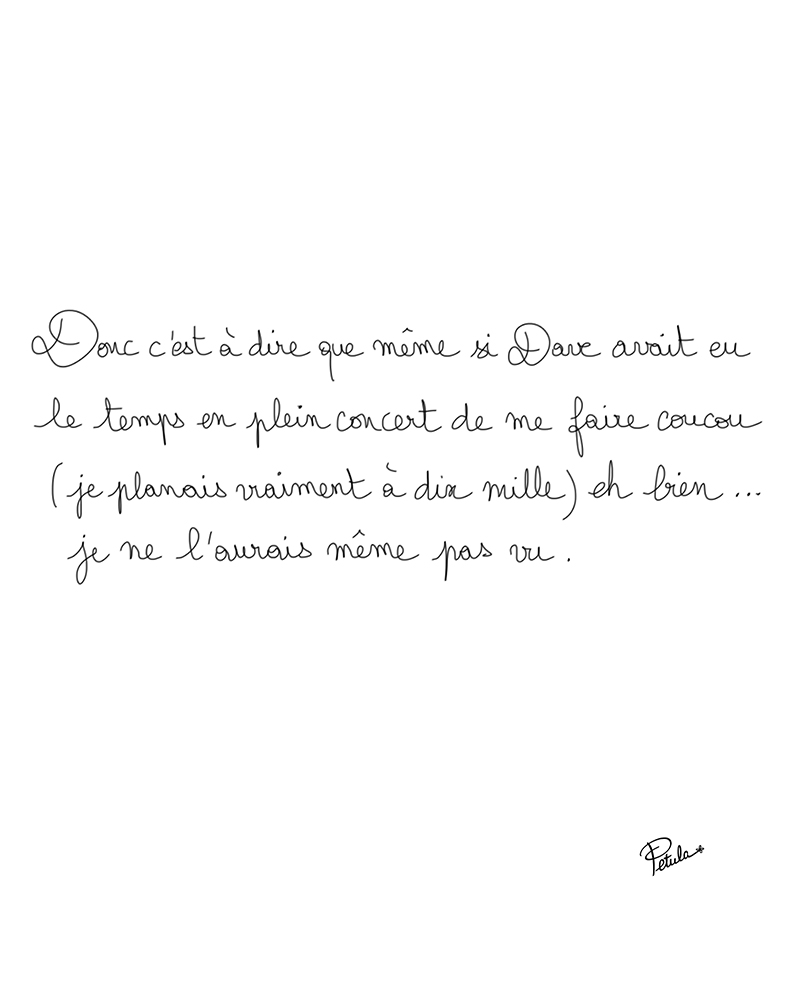 Donc c'est à dire que même si Dave avait eu
le temps en plein concert de me faire coucou
(je planais vraiment à dix mille) eh bien ...
je ne l'aurais même pas vu .
Petula*